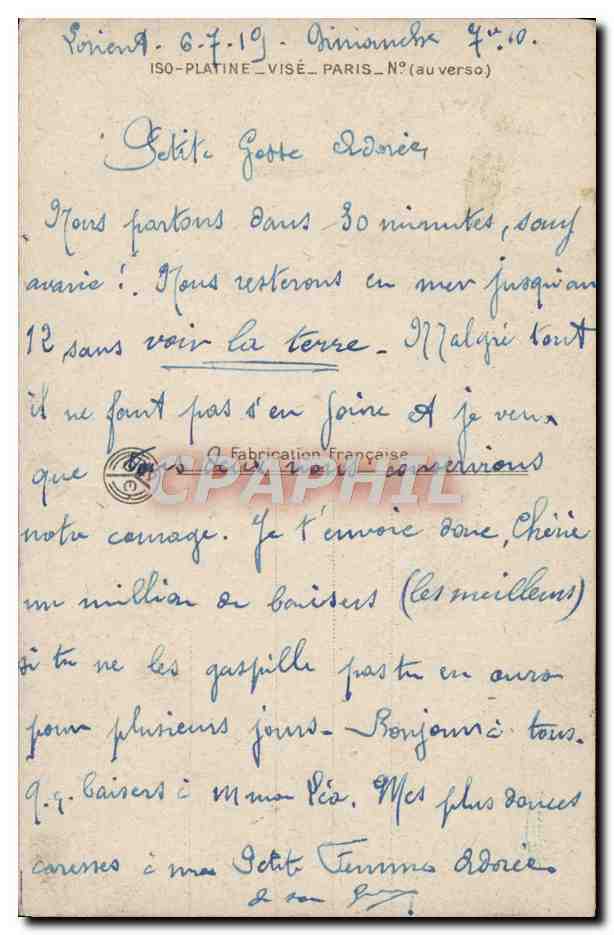 Lorient. 6-7-19. Dimanche 7
ISO-PLATINE_VISÉ_ PARIS_N° (au verso)
Petite Gosse Adorée,
Nous partons dans 30 minutes, sauf
avarie!. Nous resterons en mer jusqu'au
12, sans voir la terre. Malgré tout
il ne faut pas s'en faire et je veux
Fabrication Française
que tous deux nous conservions
CPAPHIL
notre courage. Je t'envoie donc, Chérie
un million de baisers (les meilleurs)
si tu ne les gaspille pas tu en auras
pour plusieurs jours. Bonjour à tous.
q.q. baisers à mman Léa. Mes plus douces
caresses à ma Petite Femme Adorée.
de son